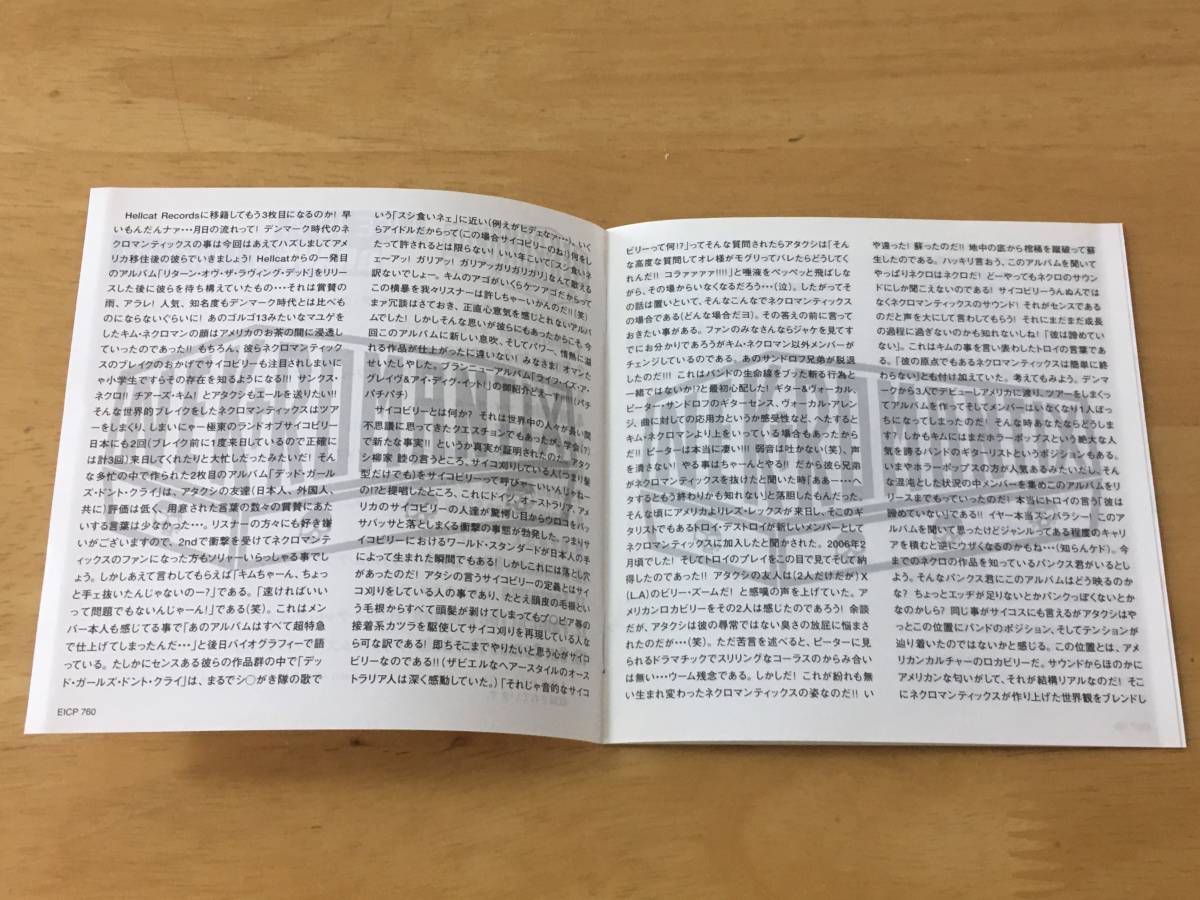 Hellcat Recordsに移籍してもう3枚目になるのか! 早
いもんだんナァ・・・月日の流れって! デンマーク時代のネ
クロマンティックスの事は今回はあえてハズしましてアメ
リカ移住後の彼らでいきましょう! Hellcatからの一発目
のアルバム「リターン・オヴ・ザ・ラヴィング・デッド」をリリー
スした後に彼らを待ち構えていたもの・・・それは賞賛の
雨、アラレ! 人気、知名度もデンマーク時代とは比べも
のにならないぐらいに! あのゴルゴ13みたいなマユゲを
したキム・ネクロマンの顔はアメリカのお茶の間に浸透し
ていったのであった!! もちろん、彼らネクロマンティック
スのブレイクのおかげでサイコビリーも注目されしまいに
ゃ小学生ですらその存在を知るようになる!!! サンクス・
ネクロ!! チアーズ・キム! とアタクシもエールを送りたい!!
そんな世界的ブレイクをしたネクロマンティックスはツア
ーをしまくり、しまいにゃー極東のランドオブサイコビリー
日本にも2回(ブレイク前に1度来日しているので正確に
は計3回)来日してくれたりと大忙しだったみたいだ! そ
んな多忙の中で作られた2枚目のアルバム「デッド・ガール
ズ・ドント・クライ」は、アタクシの友達(日本人、外国人、
共に)評価は低く、用意された言葉の数々の賞賛にあた
いする言葉は少なかった・・・。リスナーの方々にも好き嫌
いがございますので、2ndで衝撃を受けてネクロマンテ
ィックスのファンになった方もソリャーいらっしゃる事でし
ょう。しかしあえて言わしてもらえば「キムちゃーん、ちょっ
と手ぇ抜いたんじゃないのー?」である。「速ければいい
って問題でもないんじゃーん!」である(笑)。これはメン
バー本人も感じてる事で「あのアルバムはすべて超特急
で仕上げてしまったんだ・・・」と後日バイオグラフィーで語
っている。たしかにセンスある彼らの作品群の中で「デッ
ド・ガールズ・ドント・クライ」は、まるでシ○がき隊の歌で
EICP 760
いう「スシ食いネェ」に近い(例えがヒデェなァ・・・)。いく
らアイドルだからって(この場合サイコビリーのね!)何をし
たって許されるとは限らない! いい年こいて「スシ食いネ
ェ〜アッ! ガリアッ! ガリアッガリガリガリ」なんて歌える
訳ないでしょー。キムのアゴがいくらケツアゴだからって
この横暴を我々リスナーは許しちゃーいかんのだ!!(笑)
まァ冗談はさておき、正直心意気を感じとれないアルバ
ムでした! しかしそんな思いが彼らにもあったからこそ、今
回このアルバムに新しい息吹、そしてパワー、情熱に溢
れる作品が仕上がったに違いない! みなさま! オマンた
せいたしやした。ブランニューアルバム「ライフ・イズ・ア・
グレイヴ&アイ・ディグ・イット!」の御紹介どえーす!!!!(パチ
パチパチ)
サイコビリーとは何か? それは世界中の人々が長い間
不思議に思ってきたクエスチョンでもあったが、学会(?)
で新たな事実!! というか真実が証明されたのだ。アタク
シ柳家 睦の言うところ、サイコ刈りしている人(つまり髪
型だけでも)をサイコビリーって呼びゃーいいんじゃねー
の!?と提唱したところ、これにドイツ、オーストラリア、アメ
リカのサイコビリーの人達が驚愕し目からウロコをバッ
サバッサと落としまくる衝撃の事態が勃発した。つまりサ
イコビリーにおけるワールド・スタンダードが日本人の手
によって生まれた瞬間でもある! しかしこれには落とし穴
があったのだ! アタシの言うサイコビリーの定義とはサイ
コ刈りをしている人の事であり、たとえ頭皮の毛根とい
う毛根からすべて頭髪が剥けてしまってもプ○ピア等の
接着系カツラを駆使してサイコ刈りを再現している人な
ら可な訳である! 即ちそこまでやりたいと思う心がサイコ
ビリーなのである!!(ザビエルなヘアースタイルのオース
トラリア人は深く感動していた。)「それじゃ音的なサイコ
ビリーって何!?」ってそんな質問されたらアタクシは「そん
な高度な質問してオレ様がモグリってバレたらどうしてく
れんだ!! コラァァァァ!!!!」と唾液をペッペッと飛ばしな
がら、その場からいなくなるだろう・・・(泣)。したがってそ
の話は置いといて、そんなこんなでネクロマンティックス
の場合である(どんな場合だヨ)。その答えの前に言って
おきたい事がある。ファンのみなさんならジャケを見てす
でにお分かりであろうがキム・ネクロマン以外メンバーが
チェンジしているのである。あのサンドロフ兄弟が脱退
したのだ!!! これはバンドの生命線をブッた斬る行為と
一緒ではないか!?と最初心配した! ギター&ヴォーカル、
ピーター・サンドロフのギターセンス、ヴォーカル・アレン
ジ、曲に対しての応用力というか感受性など、へたすると
キム・ネクロマンより上をいっている場合もあったから
だ!! ピーターは本当に凄い!!! 弱音は吐かない(笑)、声
を潰さない! やる事はちゃーんとやる!! だから彼ら兄弟
がネクロマンティックスを抜けたと聞いた時「ああ・・・へ
タするともう終わりかも知れない」と落胆したもんだった。
そんな頃にアメリカよりレズ・レックスが来日し、そこのギ
タリストでもあるトロイ・デストロイが新しいメンバーとして
ネクロマンティックスに加入したと聞かされた。2006年2
月頃でした! そしてトロイのプレイをこの目で見てそして納
得したのであった!! アタクシの友人は(2人だけだか)X
(L.A)のビリー・ズームだ! と感嘆の声を上げていた。ア
メリカンロカビリーをその2人は感じたのであろう! 余談
だが、アタクシは彼の尋常ではない臭さの放屁に悩まさ
れたのだが・・・(笑)。ただ苦言を述べると、ピーターに見
られるドラマチックでスリリングなコーラスのからみ合い
は無い・・・ウーム残念である。しかしだ! これが紛れも無
い生まれ変わったネクロマンティックスの姿なのだ!! い
や違った! 蘇ったのだ!! 地中の底から棺桶を蹴破って蘇
生したのである。ハッキリ言おう、このアルバムを聞いて
やっぱりネクロはネクロだ! どーやってもネクロのサウン
ドにしか聞こえないのである! サイコビリーうんぬんでは
なくネクロマンティックスのサウンド! それがセンスである
のだと声を大にして言わしてもらう! それにまだまだ成長
の過程に過ぎないのかも知れないしね! 「彼は諦めてい
ない」。これはキムの事を言い表わしたトロイの言葉であ
る。「彼の原点でもあるネクロマンティックスは簡単に終
わらない」とも付け加えていた。考えてみよう。デンマ
ークから3人でデビューしアメリカに渡り、ツアーをしまくっ
てアルバムを作ってそしてメンバーはいなくなり1人ぼっ
ちになってしまったのだ! そんな時あなたならどうしま
す? しかもキムにはまだホラーポップスという絶大な人
気を誇るバンドのギタリストというポジションもある。
いまやホラーポップスの方が人気あるみたいだし、そん
な混沌とした状況の中メンバーを集めこのアルバムをリ
リースまでもっていったのだ! 本当にトロイの言う「彼は
諦めていない」である!! イヤー本当スンバラシー! このア
ルバムを聞いて思ったけどジャンルってある程度のキャリ
アを積むと逆にウザくなるのかもね・・・(知らんケド)。今
までのネクロの作品を知っているパンクス君がいるとし
よう。そんなパンクス君にこのアルバムはどう映るのか
な? ちょっとエッヂが足りないとかパンクっぽくないとか
なのかしら? 同じ事がサイコスにも言えるがアタクシはや
っとこの位置にバンドのポジション、そしてテンションが
辿り着いたのではないかと感じる。この位置とは、アメ
リカンカルチャーのロカビリーだ。サウンドからほのかに
アメリカンな匂いがして、それが結構リアルなのだ! そこ
にネクロマンティックスが作り上げた世界観をブレンドし